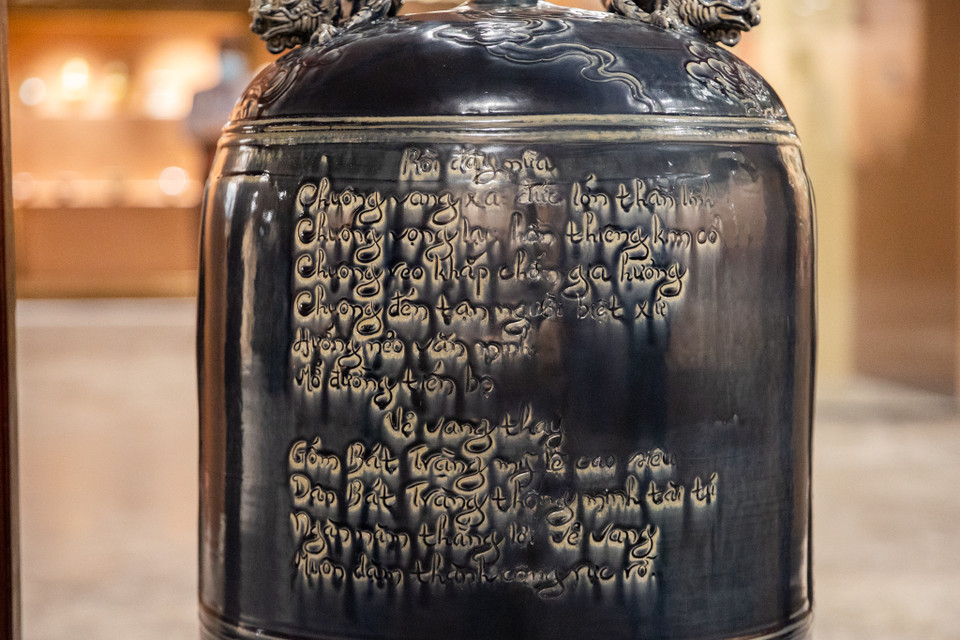 Rồi đây nữa
Chuông vang xa đức lớn thần linh
Chuông vọng lại hồn thiêng kim cổ
Chuông reo khắp chốn gia hương
Chuông đến tận người biệt xứ
Hướng nẻo văn minh
Mở đường tiến bộ
Vẻ vang thay
Gốm Bát Tràng mỹ lệ cao siêu
Dân Bát Tràng thông minh tài trí
Ngàn năm thắng lợi vẻ vang
Muôn dặm thành công rực rỡ.